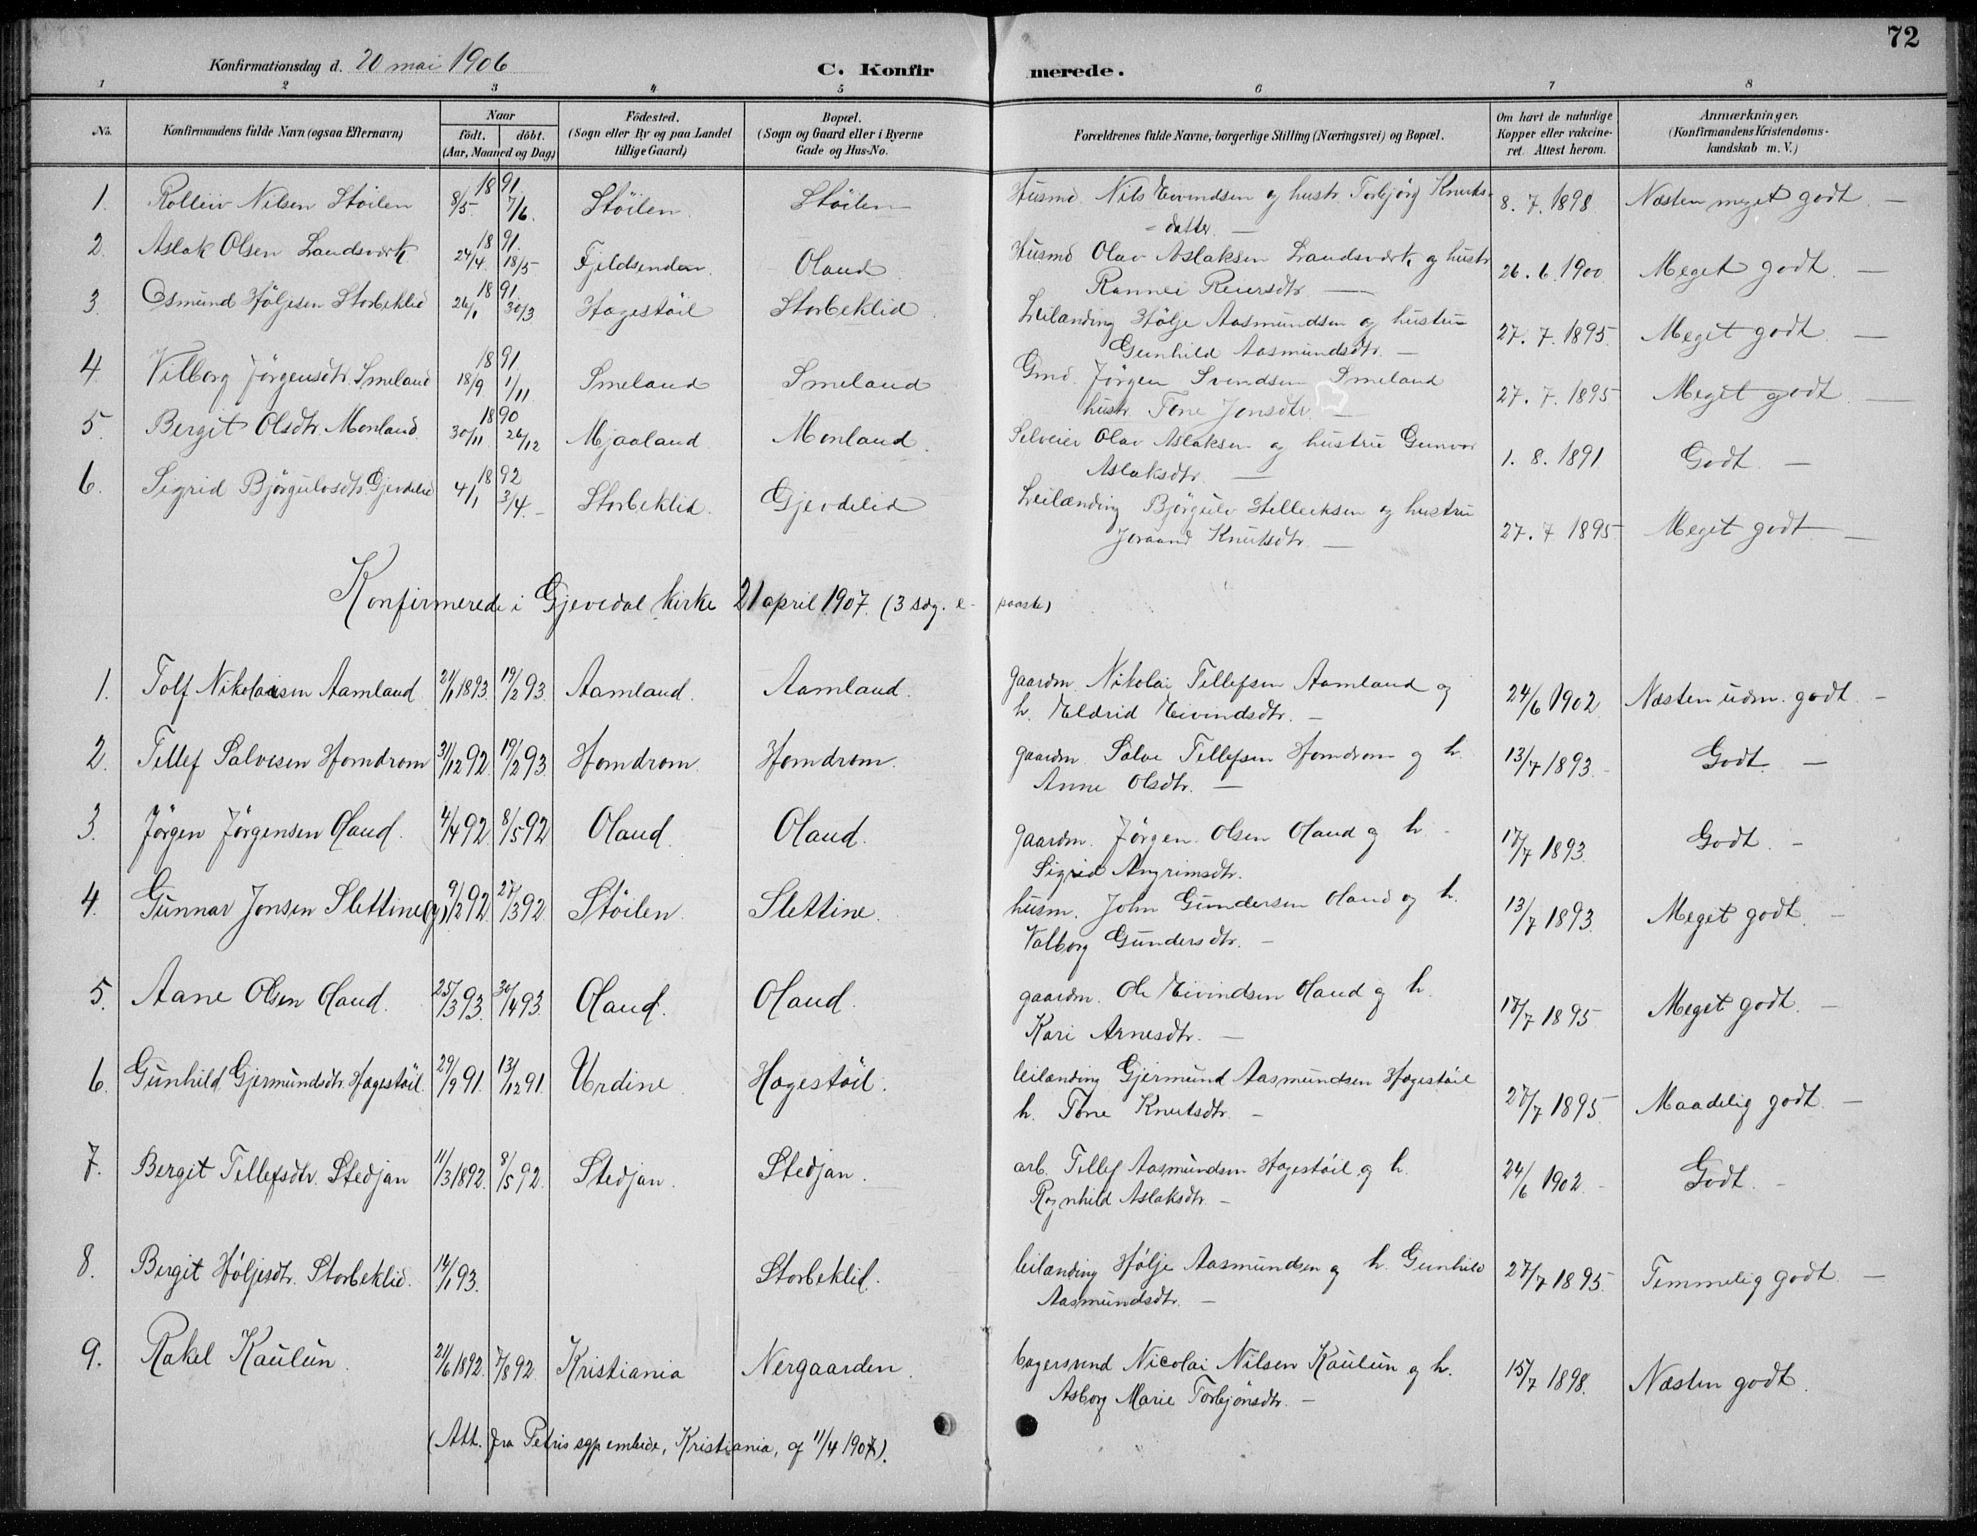 72
Konfirmationsdag d. 20 mai 1906
C. Konfirmerede.
1 2 3 4 5 6 7 8
No. Konfirmandens fulde Navn (ogsaa Efternavn) Naar födt. döbt. (Aar, Maaned og Dag) Födested. (Sogn eller By og paa Landet tillige Gaard) Bopæl. (Sogn og Gaard eller i Byerne Gade og Hus-No. Forældrenes fulde Navne, borgerlige Stilling (Næringsvei) og Bopæl. Om havt de naturlige Kopper eller vakcineret. Attest herom. Anmærkninger. (Konfirmandens Kristendomskundskab m. V.)
1. Rolleiv Nilsen Stöilen 1891 8/5 7/6. Stöilen. Stöilen Husmd Nils Eivindsen og hustr. Torbjörg Knuts- 8. 7. 1898 Næsten meget godt. —
= datter. —
2. Aslak Olsen Landsverk 1891. 24/4. 18/5 Fjeldsenden. Oland Husmd Olav Aslaksen Landsverk, og hustr 26. 6. 1900 Meget godt. —
Rannei Reiersdtr. —
3. Osmund Höljesen Storbeklid 1891 26/1 30/3 Hagestöil Storbeklid. Leilænding Hölje Aasmundsen og hustru 27. 7. 1895. Meget godt —
Gunhild Aasmundsdtr. —
4. Vilborg Jörgensdtr. Smeland 1891 18/9 1/11 Smeland Smeland Gmd. Jörgen Svendsen Smeland 27. 7. 1895 Meget godt. —
hustr. Tone Jonsdtr. —
5. Bergit Olsdtr. Monland 1890 30/11. 26/12 Mjaaland Monland. Selveier Olav Aslaksen og hustru Gunvor 1. 8. 1891 Godt. —
Aslaksdtr. —
6. Sigrid Björgulvsdtr. Gjevdelid 1892 4/1 3/4. – Storbeklid. Gjevdelid Leilænding Björgulv Helleiksen og hustru 27. 7 1895 Meget godt. —
Joraand Knutsdtr. —
Konfirmerede i Gjevedal kirke 21 april 1907. (3 søg. e. paaske)
1. Tolf Nikolaisen Aamland 24/1 1893. 19/2 93 Aamland. Aamland. gaardm. Nikolai Tellefsen Aamland og 24/6 1902 Næsten udm. godt. –
h. Eldrid Eivindsdtr. –
2. Tellef Salvesen Homdrom 31/12 92 19/2 93. Homdrom. Homdrom. gaardm. Salve Tellefsen Homdrom og h. 13/7 1893. Godt. —
Anne Olsdtr. —
3. Jörgen Jörgensen Oland. 4/4 92 8/5 92 Oland. Oland. gaardm. Jörgen Olsen Oland og h. 17/7 1893. Godt. –
Sigrid Angrimsdtr.
4. Gunnar Jonsen Slettine(y) 9/2 92. 27/3 92 Stöilen. Slettine. husm. John Gundersen Oland og h. 13/7 1893. Meget godt. –
Valborg Gundersdtr. –
5. Aane Olsen Oland. 25/3 93. 30/4 93. Oland. Oland. gaardm. Ole Eivindsen Oland og h. 17/7 1895 Meget godt. –
Kari Arnesdtr. –
6. Gunhild Gjermundsdtr. Hagestöil. 29/9 91. 13/12 91 Urdine Hagestöil. leilænding Gjermund Aasmundsen Hagestöil 27/7 1895 Maadelig godt. –
h. Tone Knutsdtr. –
7. Bergit Tellefsdtr. Stedjan 11/3 1892. 8/5 92. Stedjan. Stedjan. arb. Tellef Aasmundsen Hagestöil og h. 24/6 1902 Godt. –
Rognhild Aslaksdtr. –
8. Bergit Höljesdtr. Storbeklid. 14/1 93. Storbeklid. leilænding Hölje Aasmundsen og h. Gunhild 27/7 1895. Temmelig godt. —
Aasmundsdtr. –
9. Rakel Kaulun. 21/6 1892. 7/8 92. Kristiania Nergaarden. bagersvend Nicolai Nilsen Kaulun og h. 15/7 1898. Næsten godt.
Asborg Marie Torbjönsdtr. –
(Att. fra Petris sgpembede, Kristiania, af 11/4 1907).